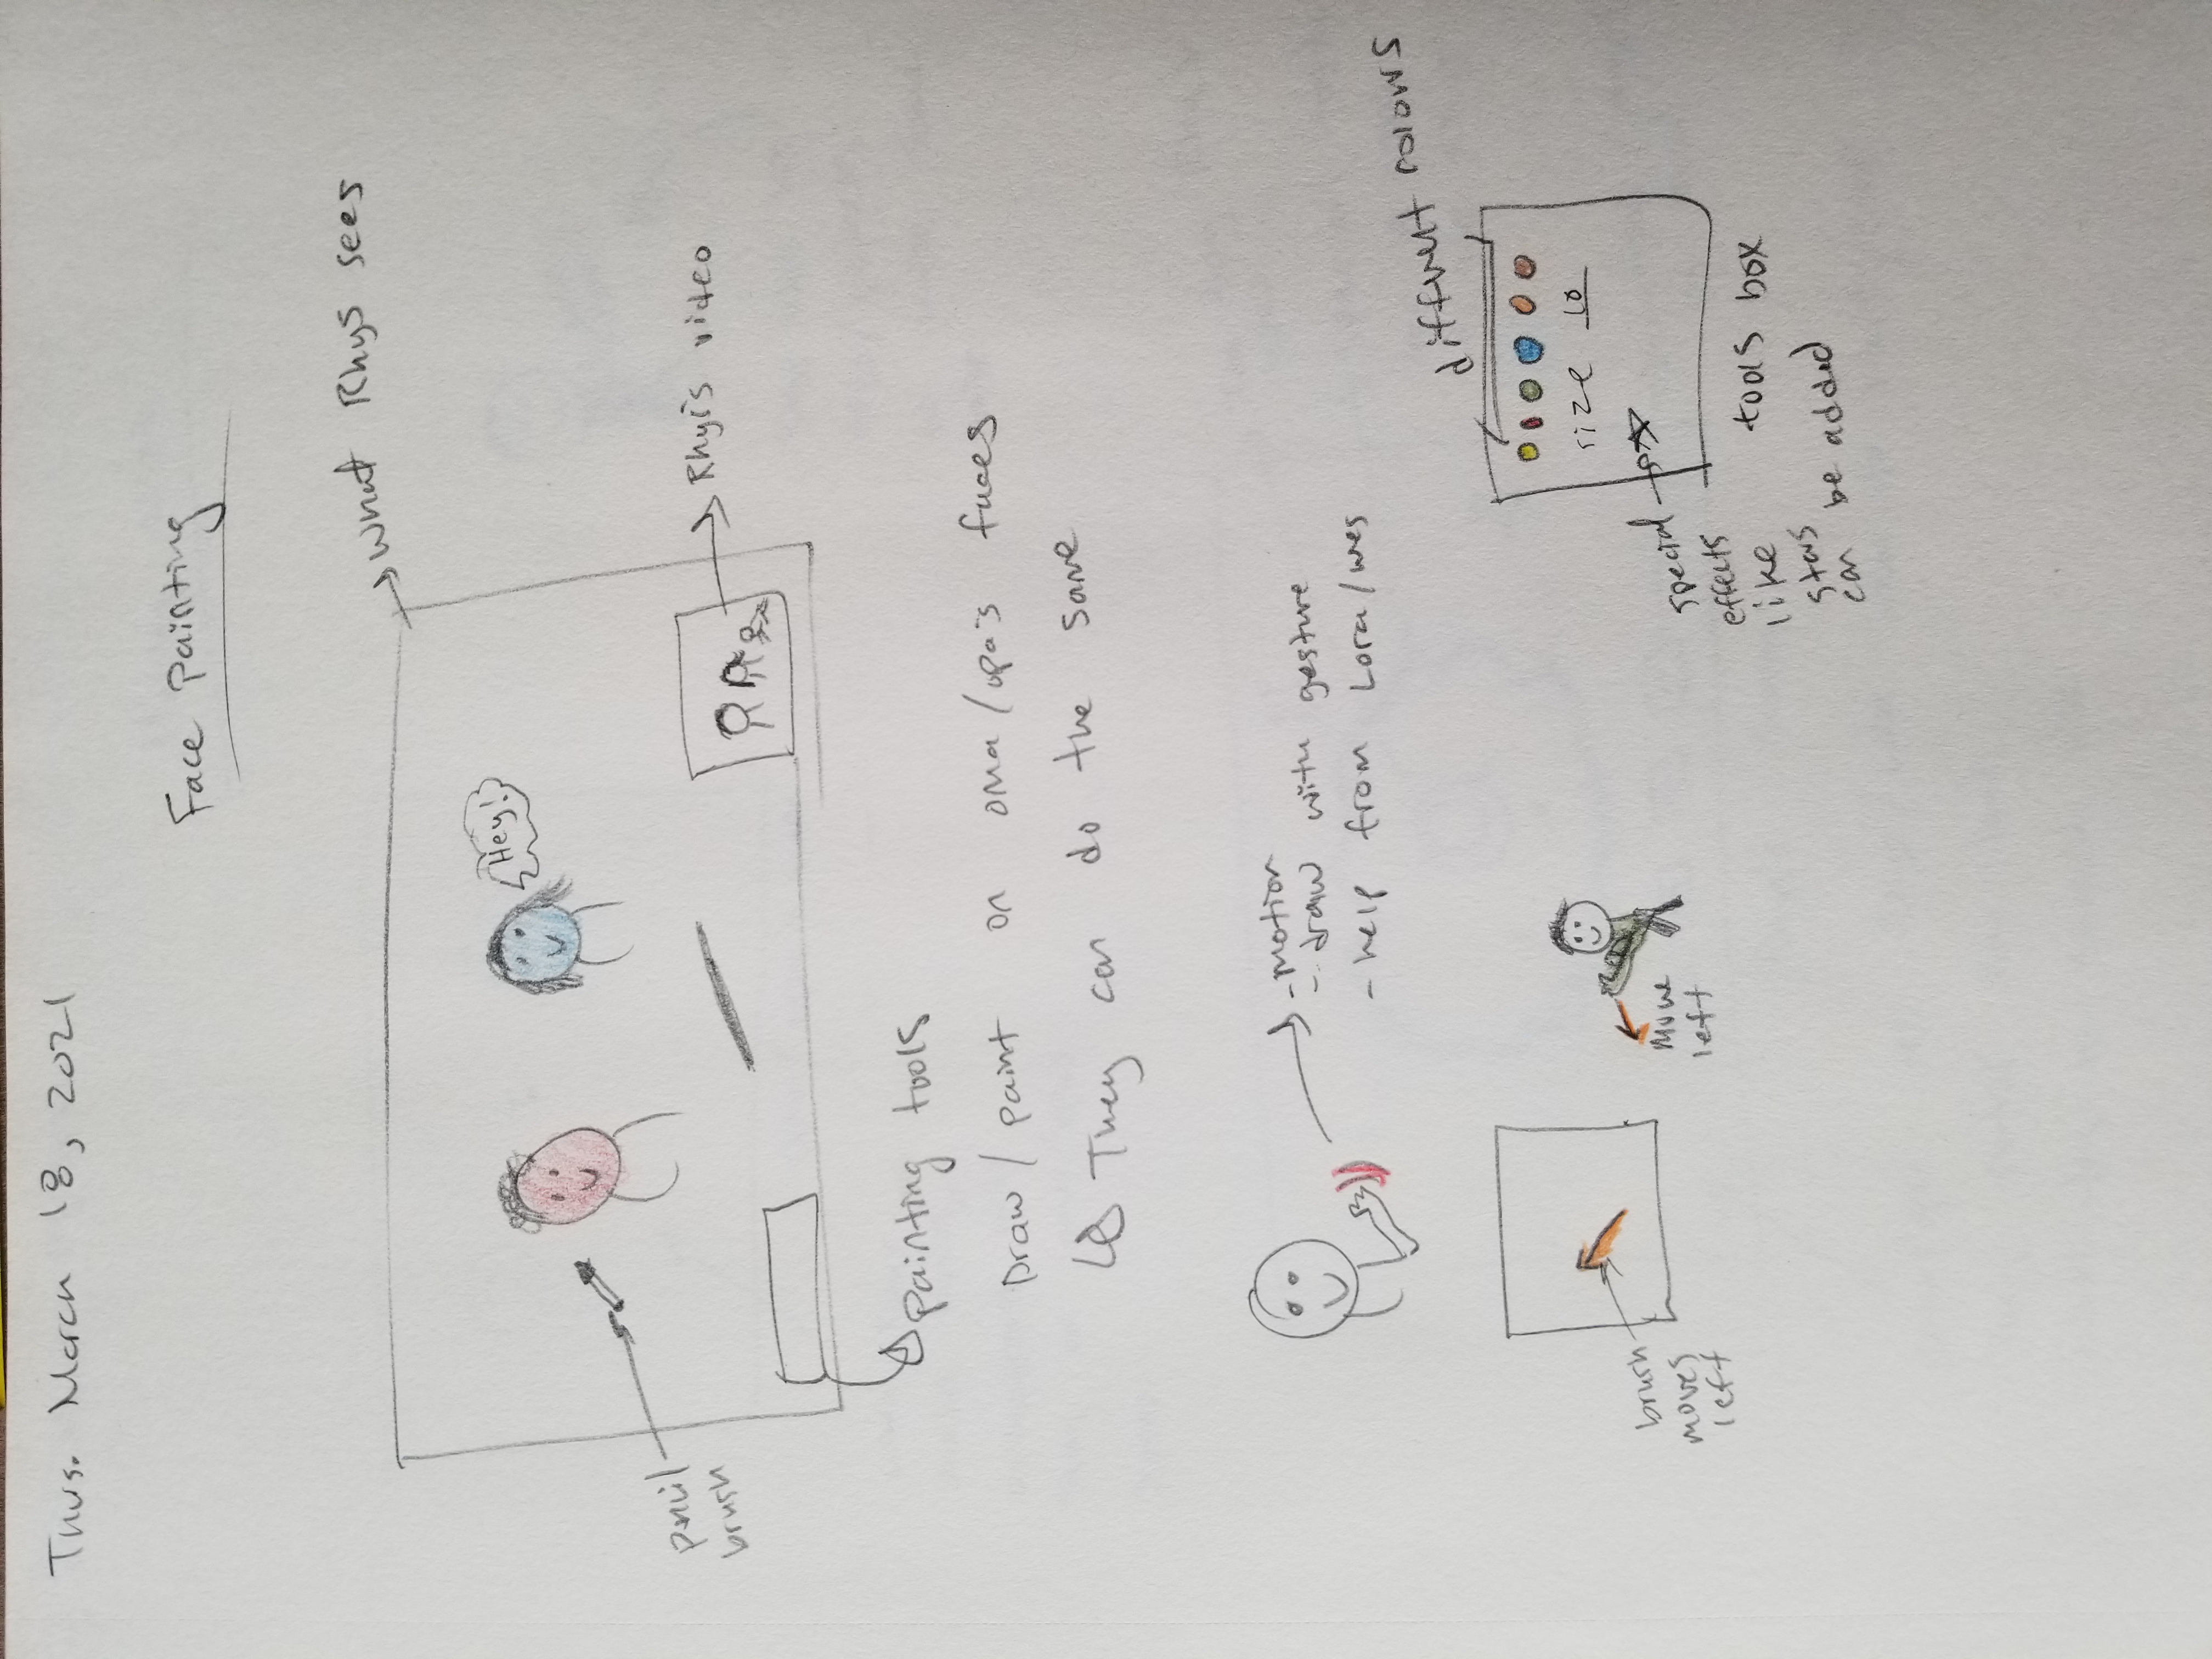 Thurs. March 18, 2021
Face Painting
what Rhys sees
Hey!
Rhy's video
pencil
brush
painting tools
Draw / paint on oma/opa's faces
They can do the same
- motion
- draw with gesture
- help from Lora/wes
different colours
size 10
tools box
special
effects
like
stars
can be added
brush
moves
left
move
left